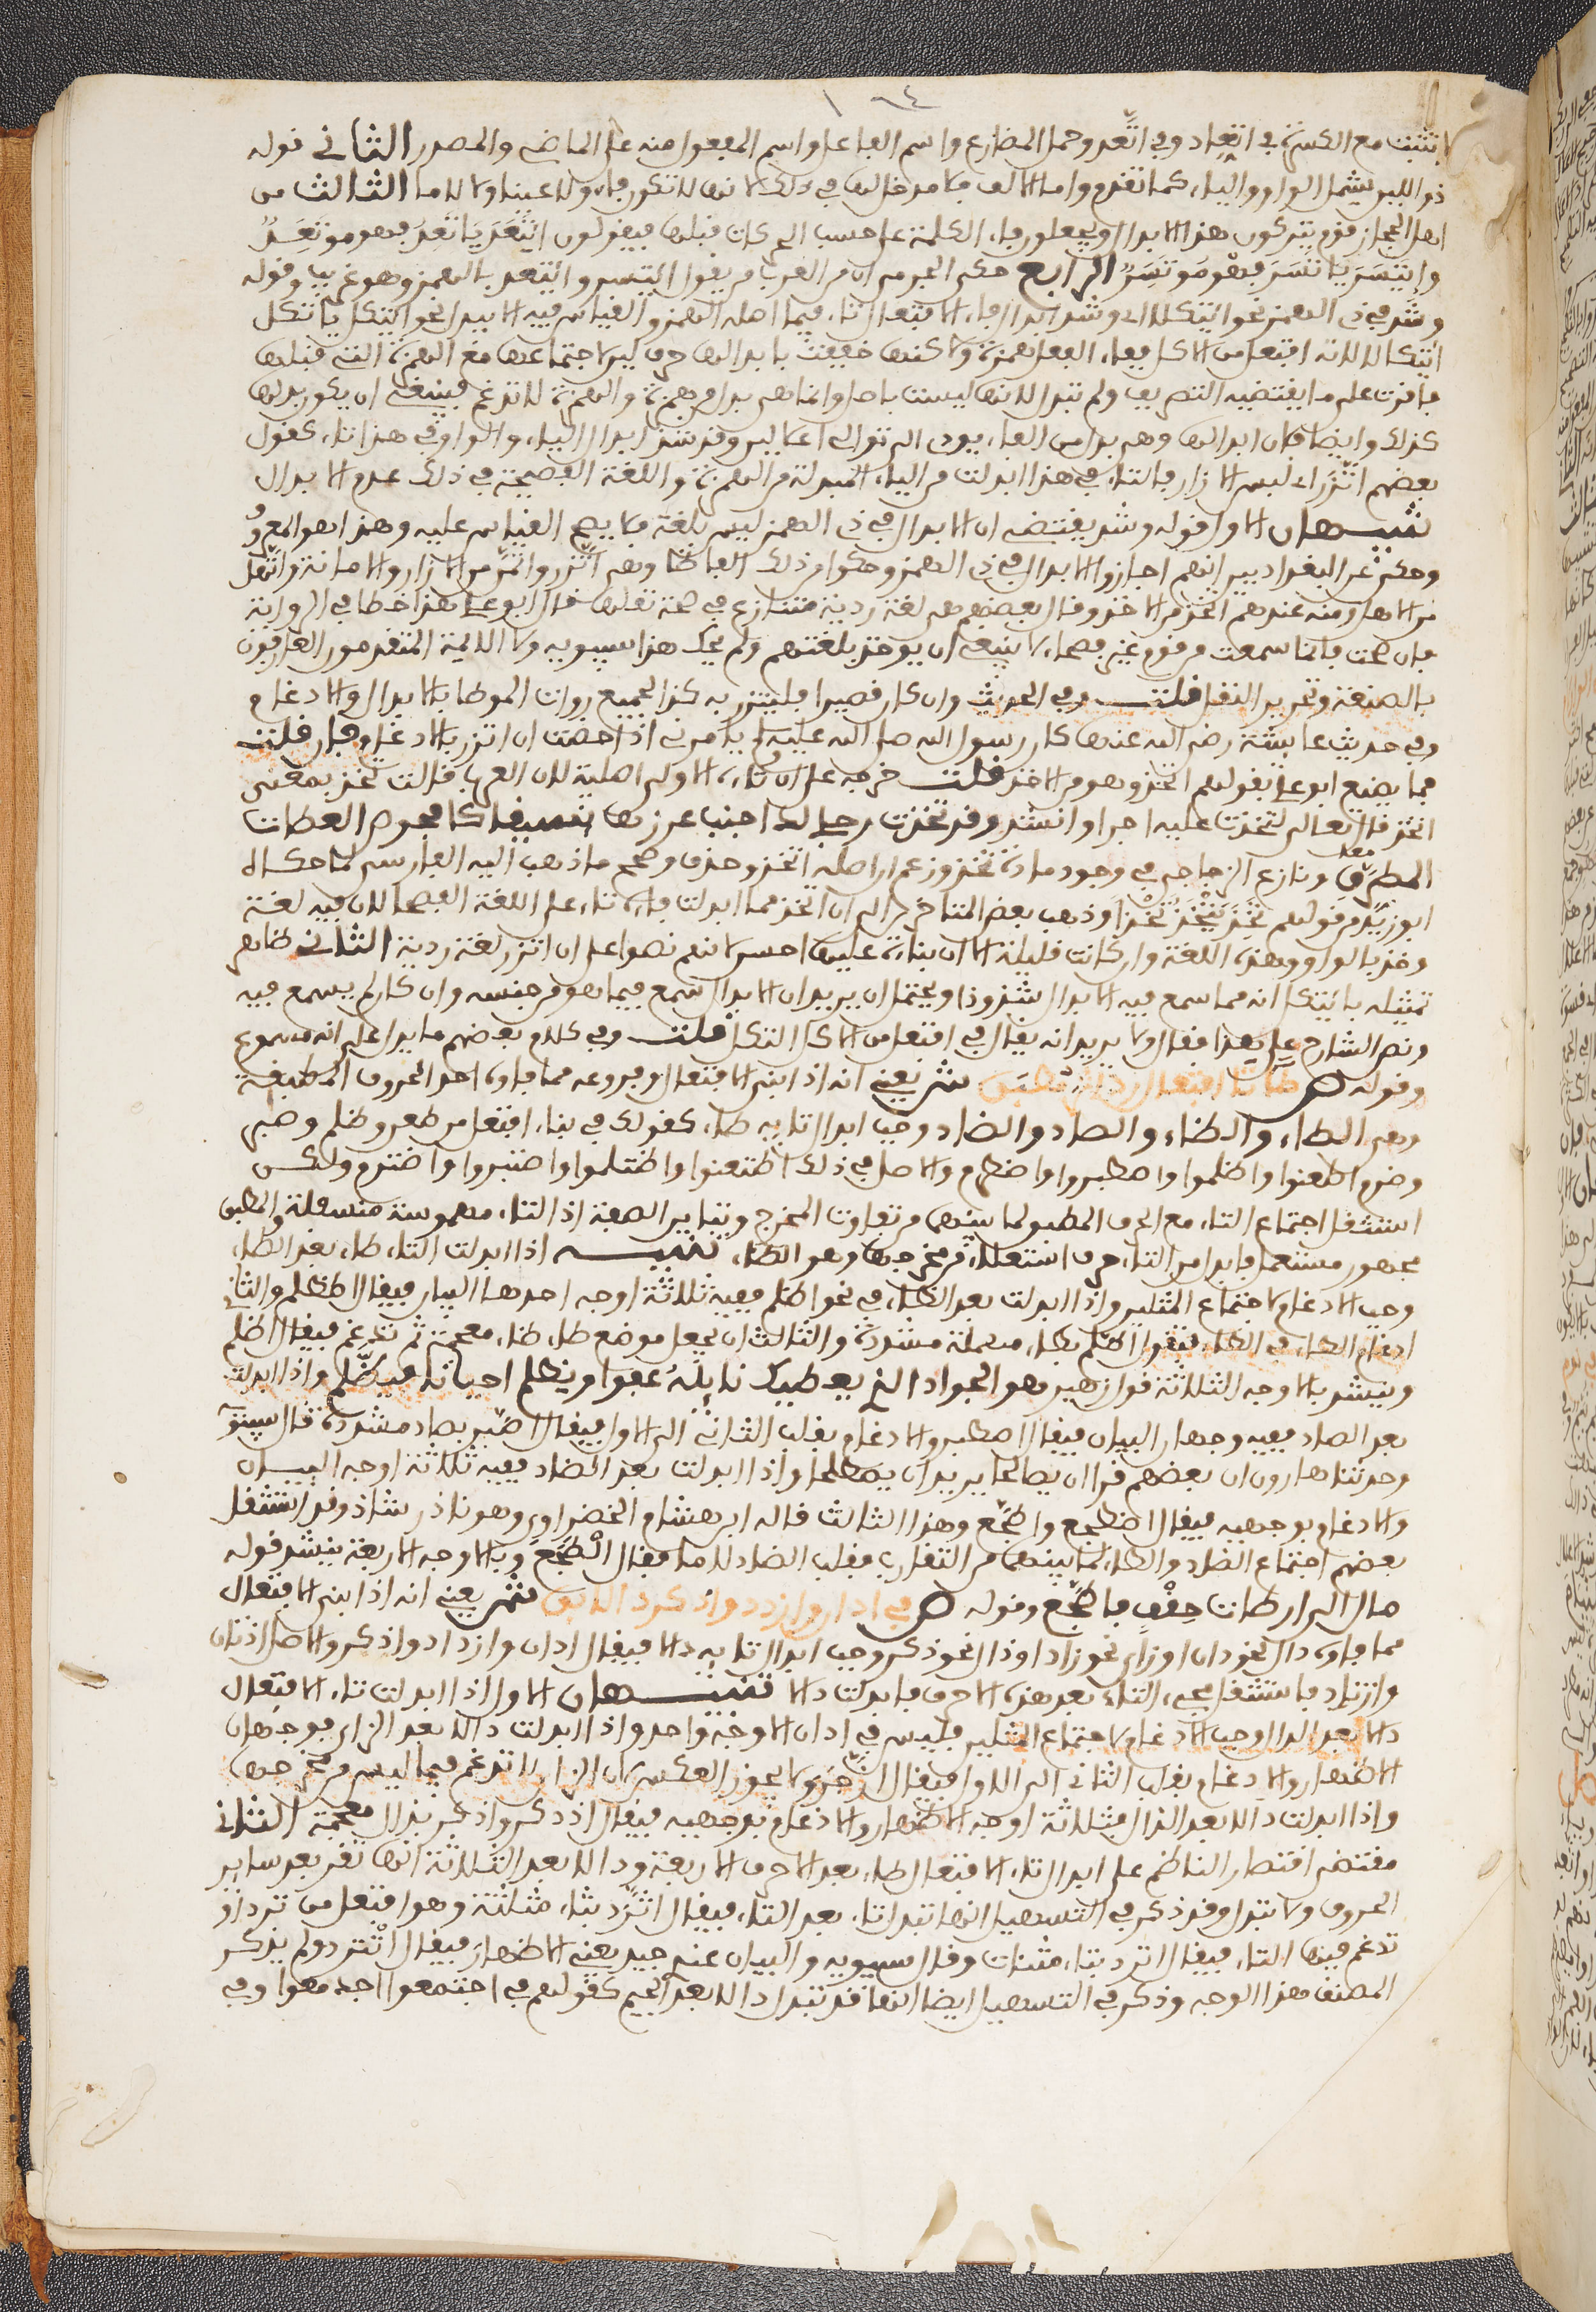 ١٩٤
لا تثبت مع الكسرة في اتعاد وفي اتَّعد وحمل المضارع واسم الفاعل واسم المفعول منه على الماضي والمصدر الثاني قوله
ذو اللين يشمل الواو والياء كما تقدم واما الالف فلا مدخل لها في ذلك لانها لا تكون فاء ولا عينا ولا لاما الثالث من
اهل الحجاز قوم يتركون هذا الابدال ويجعلون فاء الكلمة على حسب الحركات قبلها فيقولون ايتَعَدَ ياتَعدُ فهو موتَعِدٌ
وايتَسَرَ ياتَسَرَ فهو مُوتَسِرٌ الرابع حكى الجرمي ان من العرب من يقول ائتسر وائتعد بالهمز وهو غريب وقوله
وشذ في ذي الهمز نحو ايتكلا اي وشذ ابدال فاء الافتعال تاء فيما اصله الهمز والقياس فيه الا يبدل نحو ايتكل ياتكل
ايتكالا لانه افتعل من الاكل ففاء الفعل همزة ولكنها خففت بابدالها حرف لين لاجتماعها مع الهمزة التي قبلها
فاقرت على ما يقتضيه التصريف ولم تبدل لانها ليست باصل وانما هي بدل من همزة والهمزة لا تدغم فينبغي ان يكون بدلها
كذلك وايضا فان ابدالها وهي بدل من الفاء يودي الى توالي اعلالين وقد شذ ابدال الياء والواو في هذا تاء كقول
بعضهم اتَّزَرَ اي لبس الازار فالتاء في هذا ابدلت من الياء المبدلة من الهمزة واللغة الفصيحة في ذلك عدم الابدال
تنبيهان الاول قوله وشذ يقتضي ان الابدال في ذي الهمز ليس بلغة فلا يصح القياس عليه وهذا هو المعروف
وحكي عن البغداديين انهم اجازوا الابدال في ذي الهمز وحكوا من ذلك الفاظا وهي اتَّزر واتَّمن من الازار والامانة واتَّهل
من الاهل ومنه عندهم اتخذ من الاخذ وقال بعضهم هي لغة رديئة متنازع في صحة نقلها قال ابو علي هذا خطا في الرواية
فان صحت فانما سمعت من قوم غير فصحاء لا ينبغي ان يوخذ بلغتهم ولم يحك هذا سيبويه ولا الائمة المتقدمون العارفون
بالصنعة وتحرير النقل قلت وفي الحديث وان كان قصيرا فليتزر به كذا لجميع روات الموطا بالابدال والادغام
وفي حديث عائشة رضي الله عنها كان رسول الله صلى الله عليه وسلم يامرني اذا حضت ان اتزر بالادغام فان قلت
فما يصنع ابو علي بقولهم اتخذ وهو من الاخذ قلت خرجه على ان تاءه الاولى اصلية لان العرب قالت تخذ بمعنى
اتخذ قال تعالى لتخذت عليه اجرا وانشد وقد تخذت رجلي لدى جنب غرزها نسيفا كافحوص القطات
المطرِّق ونازع الزجاجي في وجود مادة تخذ وزعم ان اصله اتخذ وحذف وصحح ما ذهب اليه الفارسي لما حكاه
ابو زيد من قولهم تَخَذَ يَتْخَذُ تَخْذاً وذهب بعض المتاخرين الى ان اتخذ مما ابدلت فاءه تاء على اللغة الفصحى لان فيه لغة
وخذ بالواو وهذه اللغة وان كانت قليلة الا ان بناءه عليها احسن لانهم نصوا على ان اتزر لغة ردية الثاني ظاهر
تمثيله بايتكل انه مما سمع فيه الابدال شذوذا ويحتمل ان يريد ان الابدال سمع فيما هو من جنسه وان كان لم يسمع فيه
ونص الشارح على هذا فقال ولا يريد انه يقال في افتعل من الاكل اتكل قلت وفي كلام بعضهم ما يدل على انه مسموع
وقوله ص طا تا افتعال رد اثر مطبق ش يعني انه اذا بني الافتعال وفروعه مما فاءه احد الحروف المطبقة
وهي الطاء والظاء والصاد والضاد وجب ابدال تائه طاء كقولك في بناء افتعل من طعن وظلم وصبر
وضرم اطعنوا واظلموا واصطبروا واضطرم والاصل في ذلك اطتعنوا واظتلموا واصتبروا واضترم ولكن
استثقل اجتماع التاء مع الحرف المطبق لما بينهما من تفاوت المخرج وتباين الصفة اذ التاء مهموسة منسفلة والمطبق
مجهور مستعل فابدل من التاء حرف استعلاء من مخرجها وهو الطاء تنبيه اذا ابدلت التاء طاء بعد الطاء
وجب الادغام لاجتماع المثلين واذا ابدلت بعد الظاء في نحو اظلم ففيه ثلاثة اوجه احدها البيان فيقال اظطلم والثاني
ادغام الظاء في الطاء فتقول اطَّلم بطاء مهملة مشددة والثالث ان يجعل موضع طاء ظاء معجمة ثم تدغم فيقال اظَّلم
وينشد بالاوجه الثلاثة قول زهير هو الجواد الذي يعطيك نايلَهُ عفوا ويظلم احيانا فيظَّلم واذا ابدلت
بعد الصاد ففيه وجهان البيان فيقال اصطبر والادغام بقلب الثاني الى الاول فيقال اصَّبر بصاد مشددة قال سيبويه
وحدثنا هارون ان بعضهم قرا ان يصالحا يريد ان يصطلحا واذا ابدلت بعد الضاد ففيه ثلاثة اوجه البيان
والادغام بوجهيه فيقال اضطجع واضَّجع وهذا الثالث قاله ابن هشام الخضراوي وهو نادر شاذ وقد استثقل
بعضهم اجتماع الضاد والطاء لما بينهما من التقارب فقلب الضاد لاما فقال الْطَجَعَ وبالاوجه الاربعة ينشد قوله
مال الى ارطات حِقْفٍ فاضَّجع وقوله ص في ادان وازدد وادكر دالا بقي ش يعني انه اذا بني الافتعال
مما فاءه دال نحو دان او زاي نحو زاد او ذال نحو ذكر وجب ابدال تائه دالا فيقال ادان وازداد واذكر والاصل ادتان
وازتاد فاستثقل مجيء التاء بعد هذه الاحرف فابدلت دالا تنبيهان الاول اذا ابدلت تاء الافتعال
دالا بعد الدال وجب الادغام لاجتماع المثلين فليس في ادان الا وجه واحد واذا ابدلت دالا بعد الزاي فوجهان
الاظهار والادغام بقلب الثاني الى الاول فيقال ازَّجَرَ ولا يجوز العكس لان الزاي لا تدغم فيما ليس من مخرجها
واذا ابدلت دالا بعد الذال فثلاثة اوجه الاظهار والادغام بوجهيه فيقال اذدكر واذكر بذال معجمة الثاني
مقتضى اقتصار الناظم على ابدال تاء الافتعال طاء بعد الاحرف الاربعة ودالا بعد الثلاثة انها تقر بعد ساير
الحروف ولا تبدل وقد ذكر في التسهيل انها تبدل ثاء بعد الثاء فيقال اثَّرد بثاء مثلثة وهو افتعل من ثرد او
تدغم فيها الثاء فيقال اترد بتاء مثنات وقال سيبويه والبيان عندي جيد يعني الاظهار فيقال اثترد ولم يذكر
المصنف هذا الوجه وذكر في التسهيل ايضا انها قد تبدل دالا بعد الجيم كقولهم في اجتمعوا اجدمعوا وفي